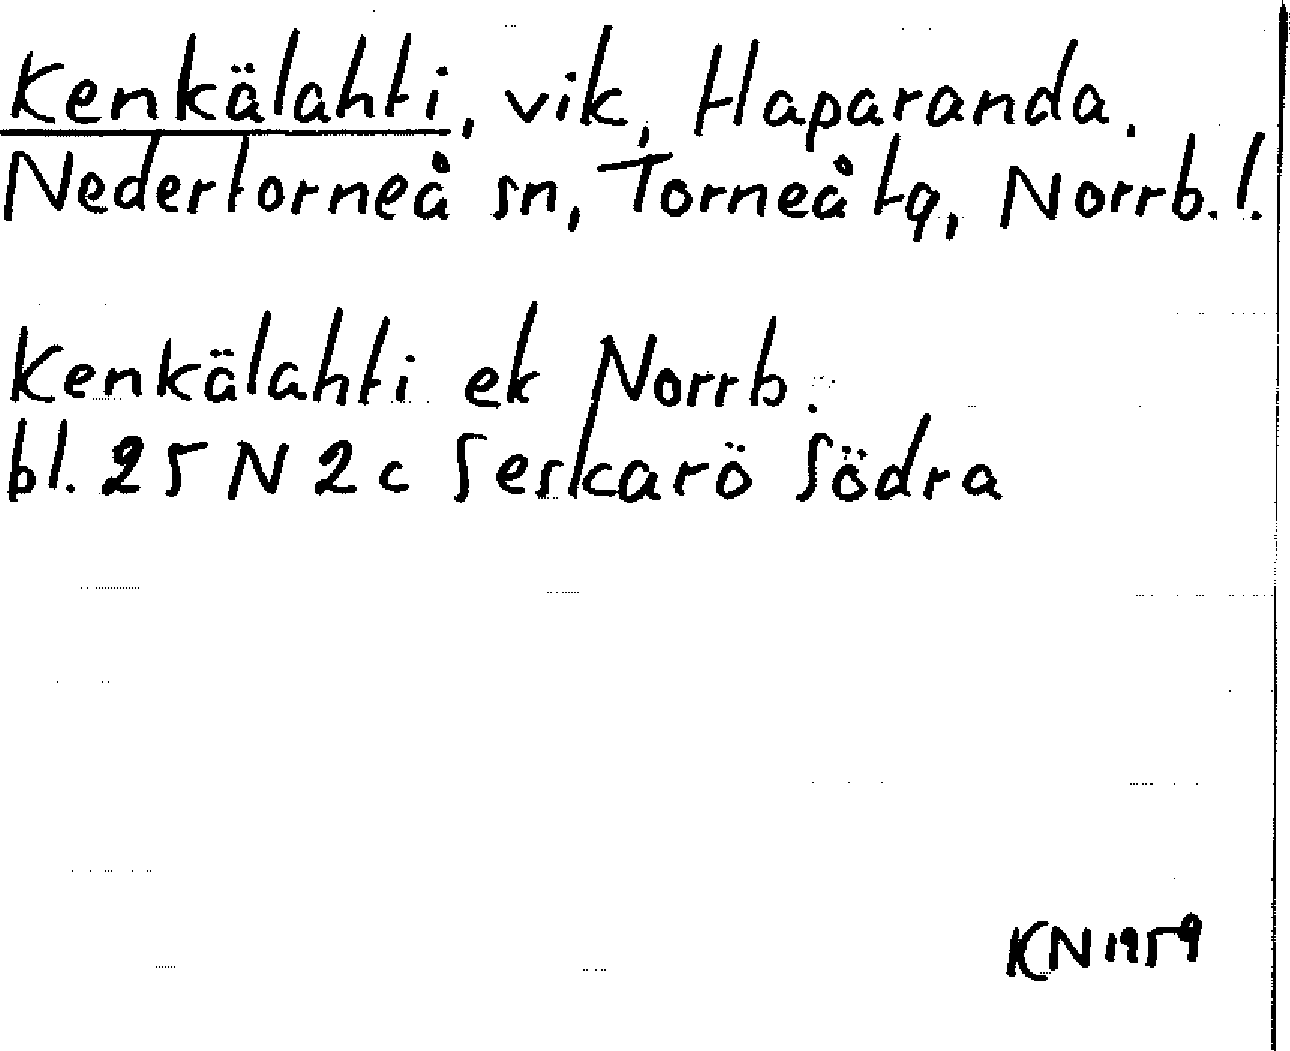 Kenkälahti, vik, Haparanda.
Nedertorneå sn, Torneå tg, Norrb. l.
Kenkälahti ek Norrb.
bl. 25 N 2 c Seskarö Södra
KN 1959